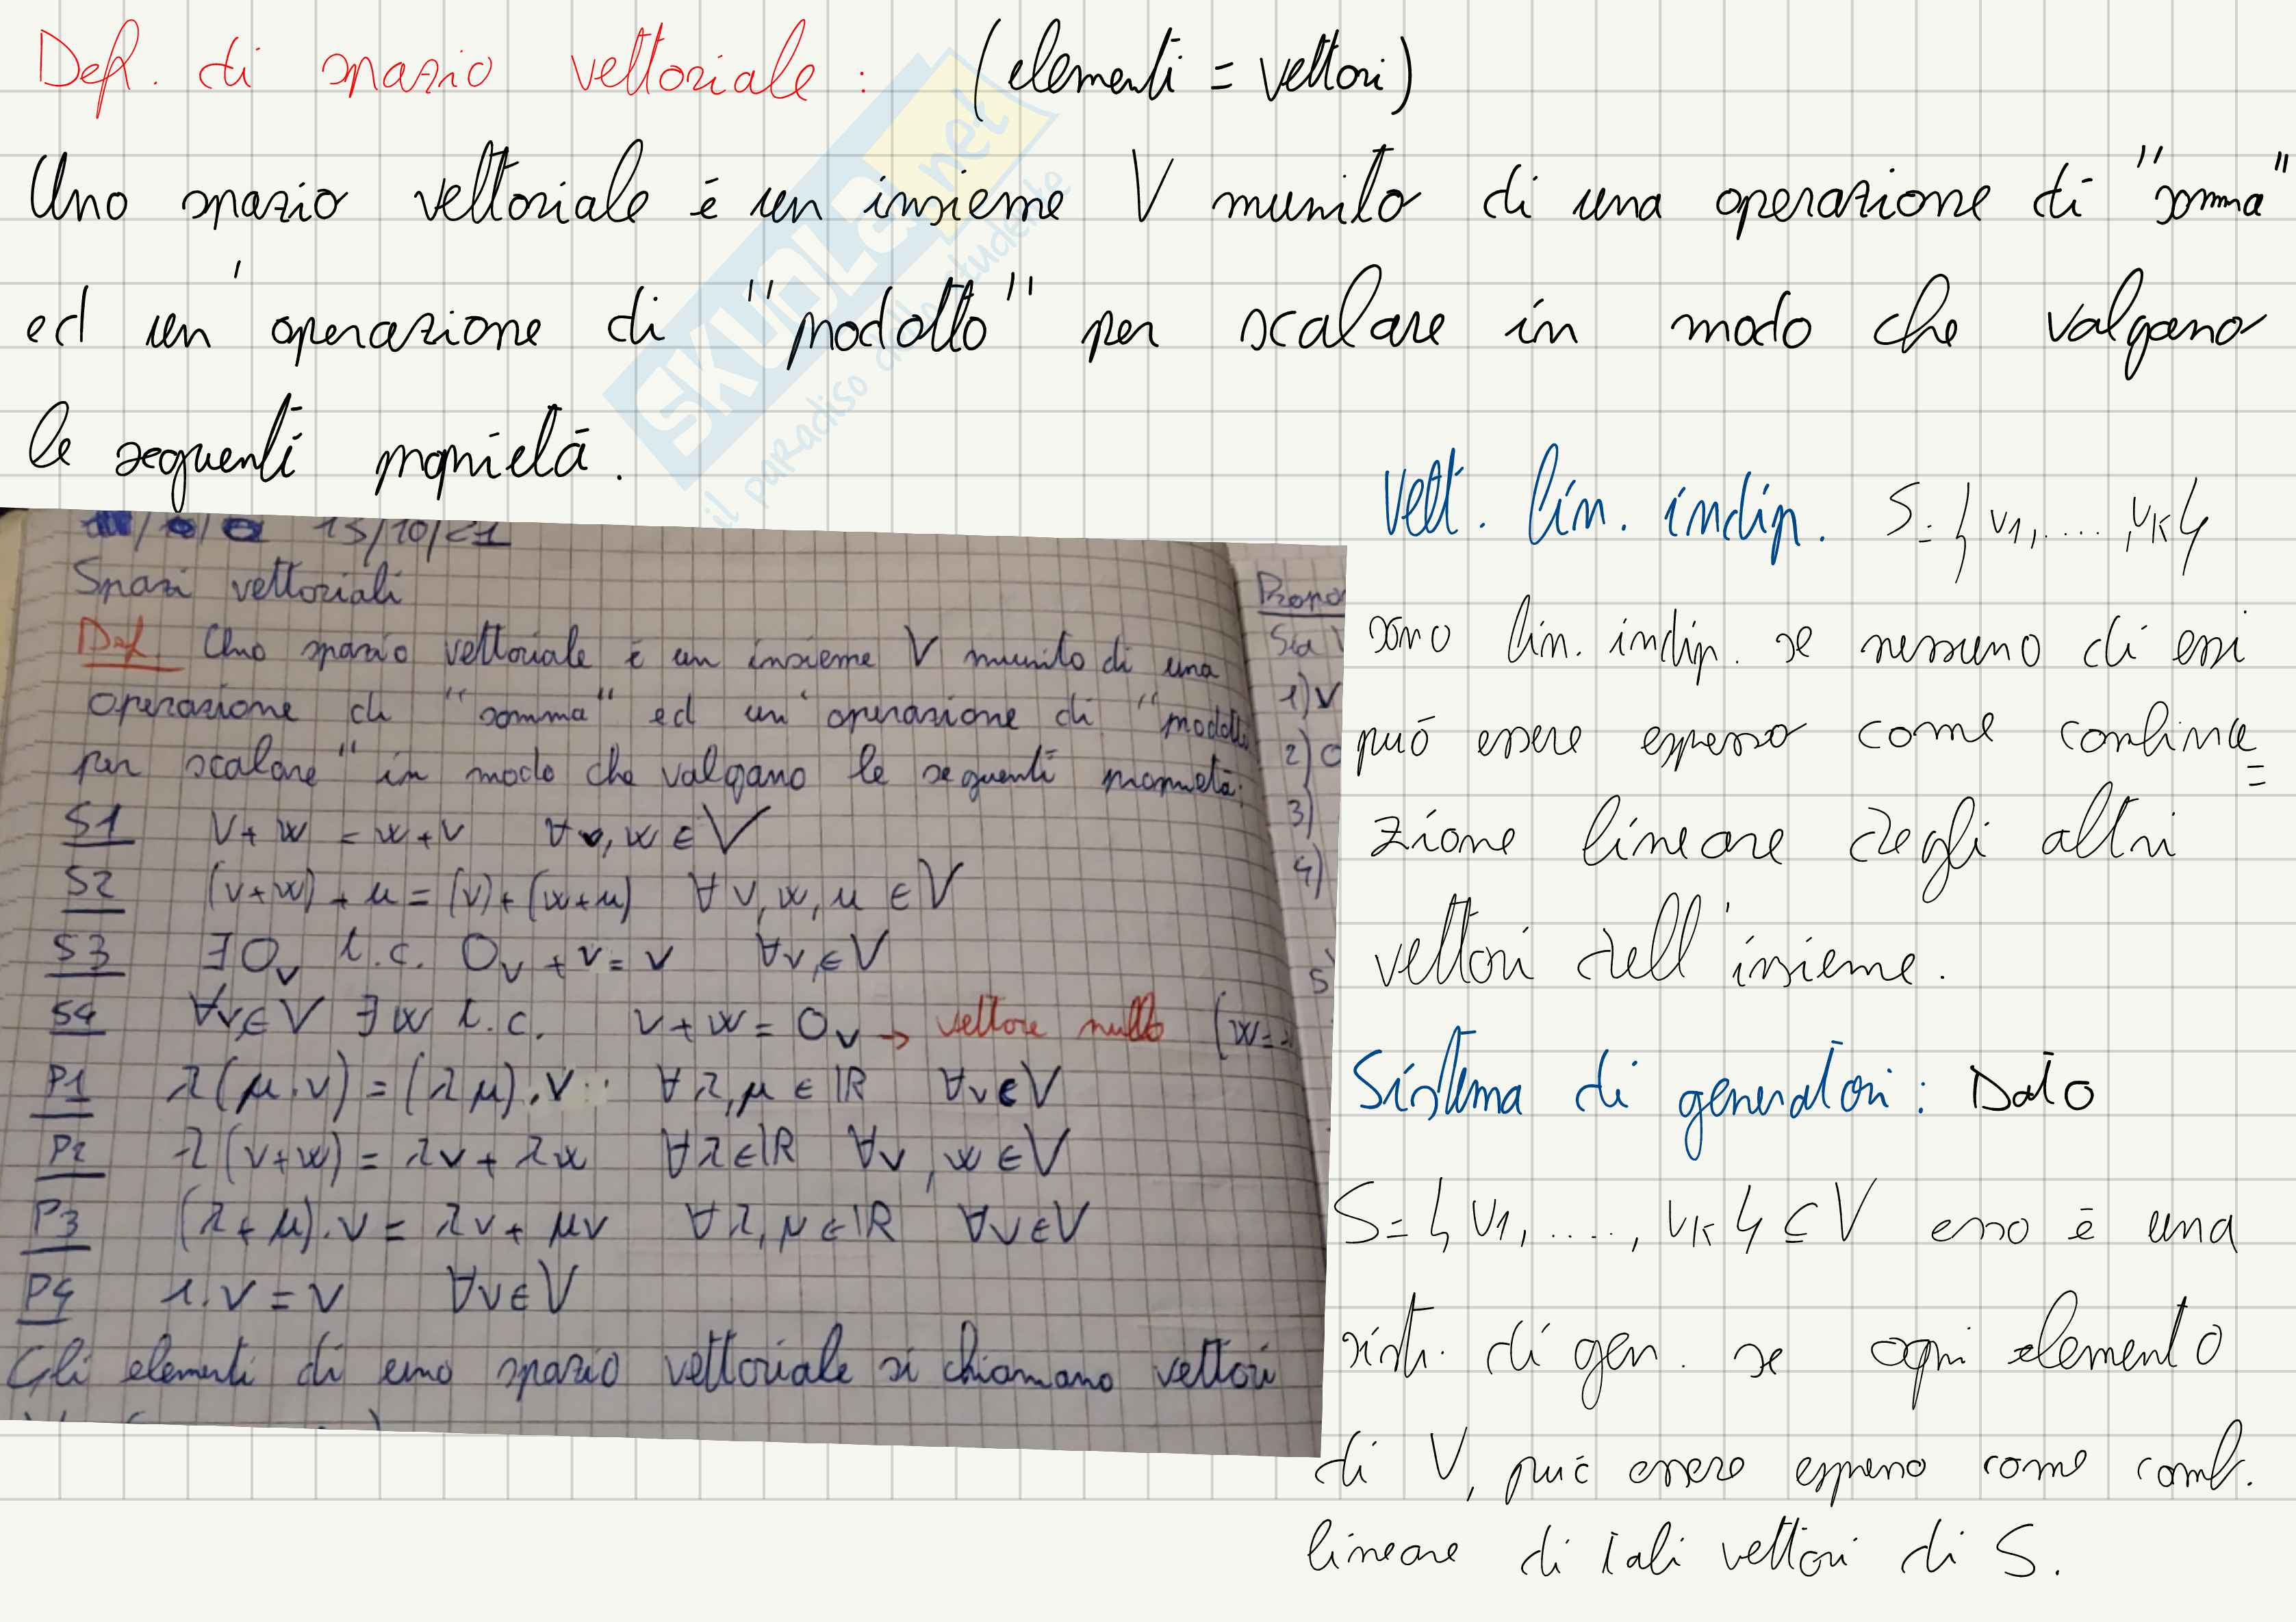 Def. di spazio vettoriale : (elementi = vettori)
Uno spazio vettoriale è un insieme V munito di una operazione di "somma"
ed un'operazione di "prodotto" per scalare in modo che valgano
le seguenti proprietà.
SKUOLA.net
il paradiso dello studente
13/10/21
Spazi vettoriali
Def. Uno spazio vettoriale è un insieme V munito di una
operazione di "somma" ed un'operazione di "prodotto
per scalare" in modo che valgano le seguenti proprietà:
S1 v+w = w+v ∀v,w ∈ V
S2 (v+w)+u = (v)+(w+u) ∀v,w,u ∈ V
S3 ∃0v t.c. 0v+v = v ∀v∈V
S4 ∀v∈V ∃w t.c. v+w = 0v → vettore nullo (w=-
P1 λ(μ.v) = (λμ).v ∀λ,μ ∈ ℝ ∀v∈V
P2 λ(v+w) = λv+λw ∀λ∈ℝ ∀v,w∈V
P3 (λ+μ).v = λv+μv ∀λ,μ∈ℝ ∀v∈V
P4 1.v = v ∀v∈V
Gli elementi di uno spazio vettoriale si chiamano vettori
Propo
Sia V
1) V
2) 0
3)
4)
5)
Vett. lin. indip. S={v1,....,vk}
sono lin. indip. se nessuno di essi
può essere espresso come combina=
zione lineare degli altri
vettori dell'insieme.
Sistema di generatori : Dato
S={v1,....,vk}⊆V esso è una
sist. di gen. se ogni elemento
di V, può essere espresso come comb.
lineare di tali vettori di S.